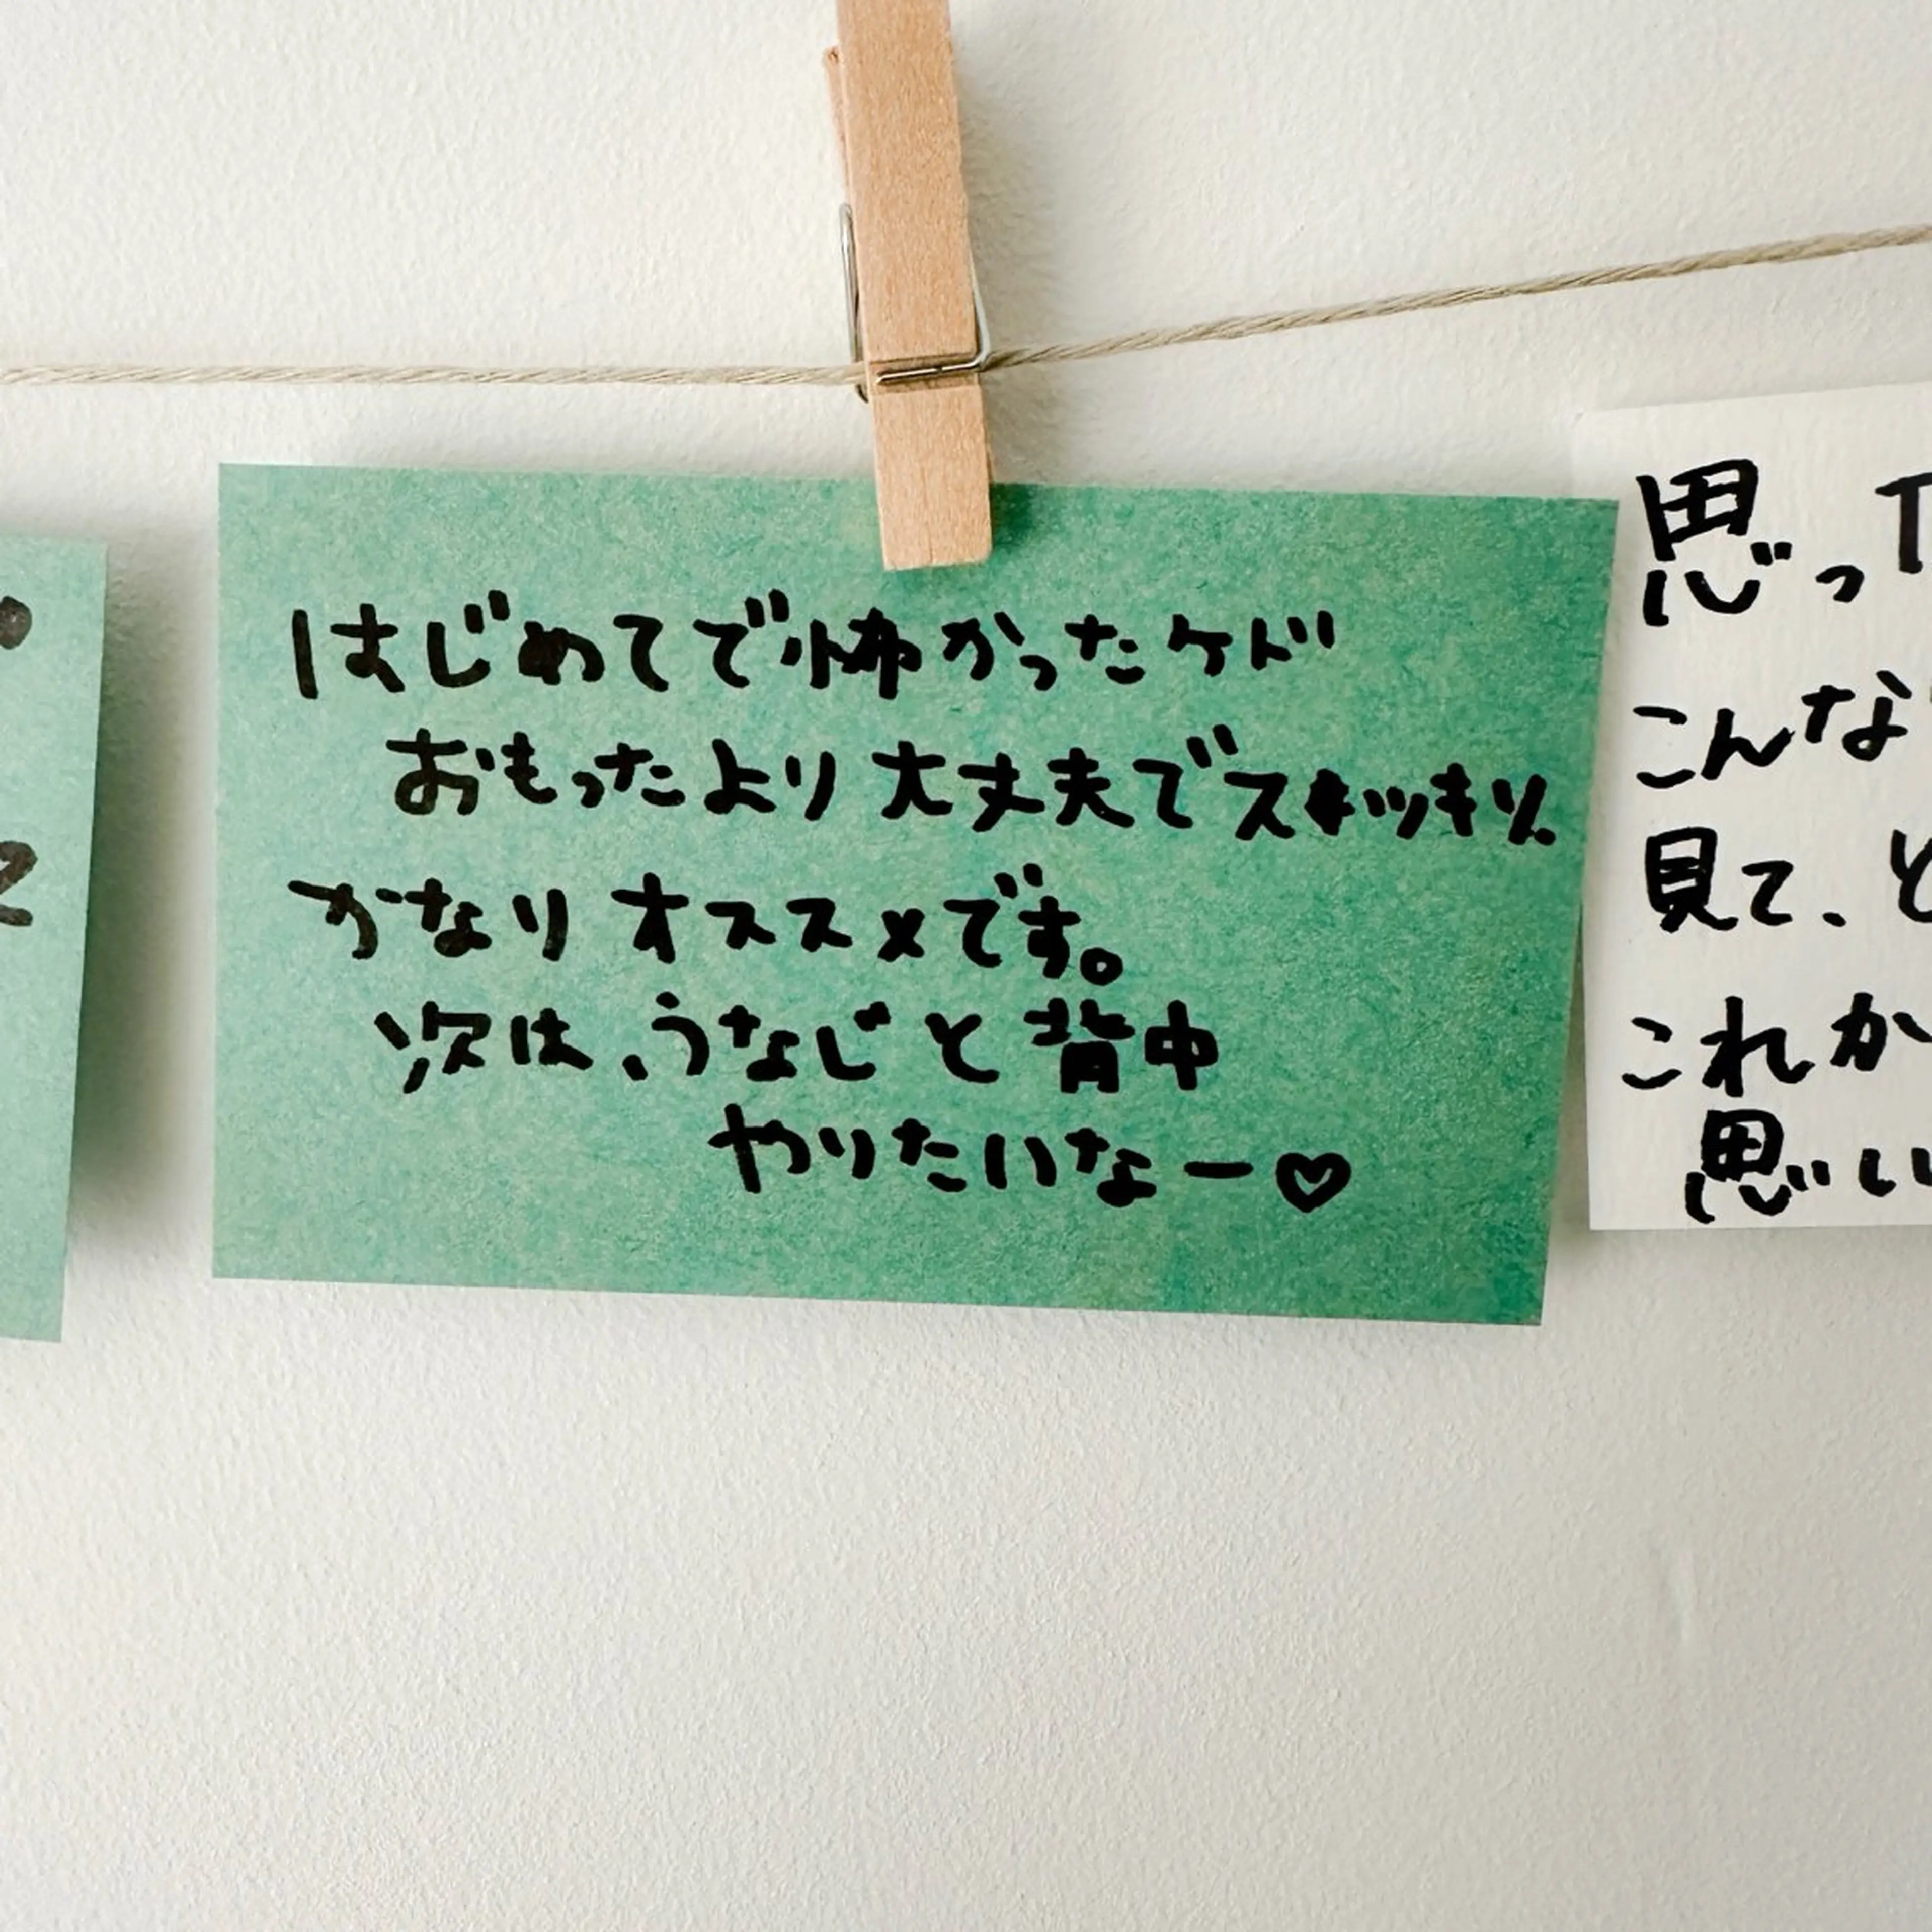 はじめてで怖かったケド
おもったより大丈夫でスッキリ。
かなりオススメです。
次は、うなじと背中
やりたいなー♡
思っ
こんな
見て、と
これか
思い